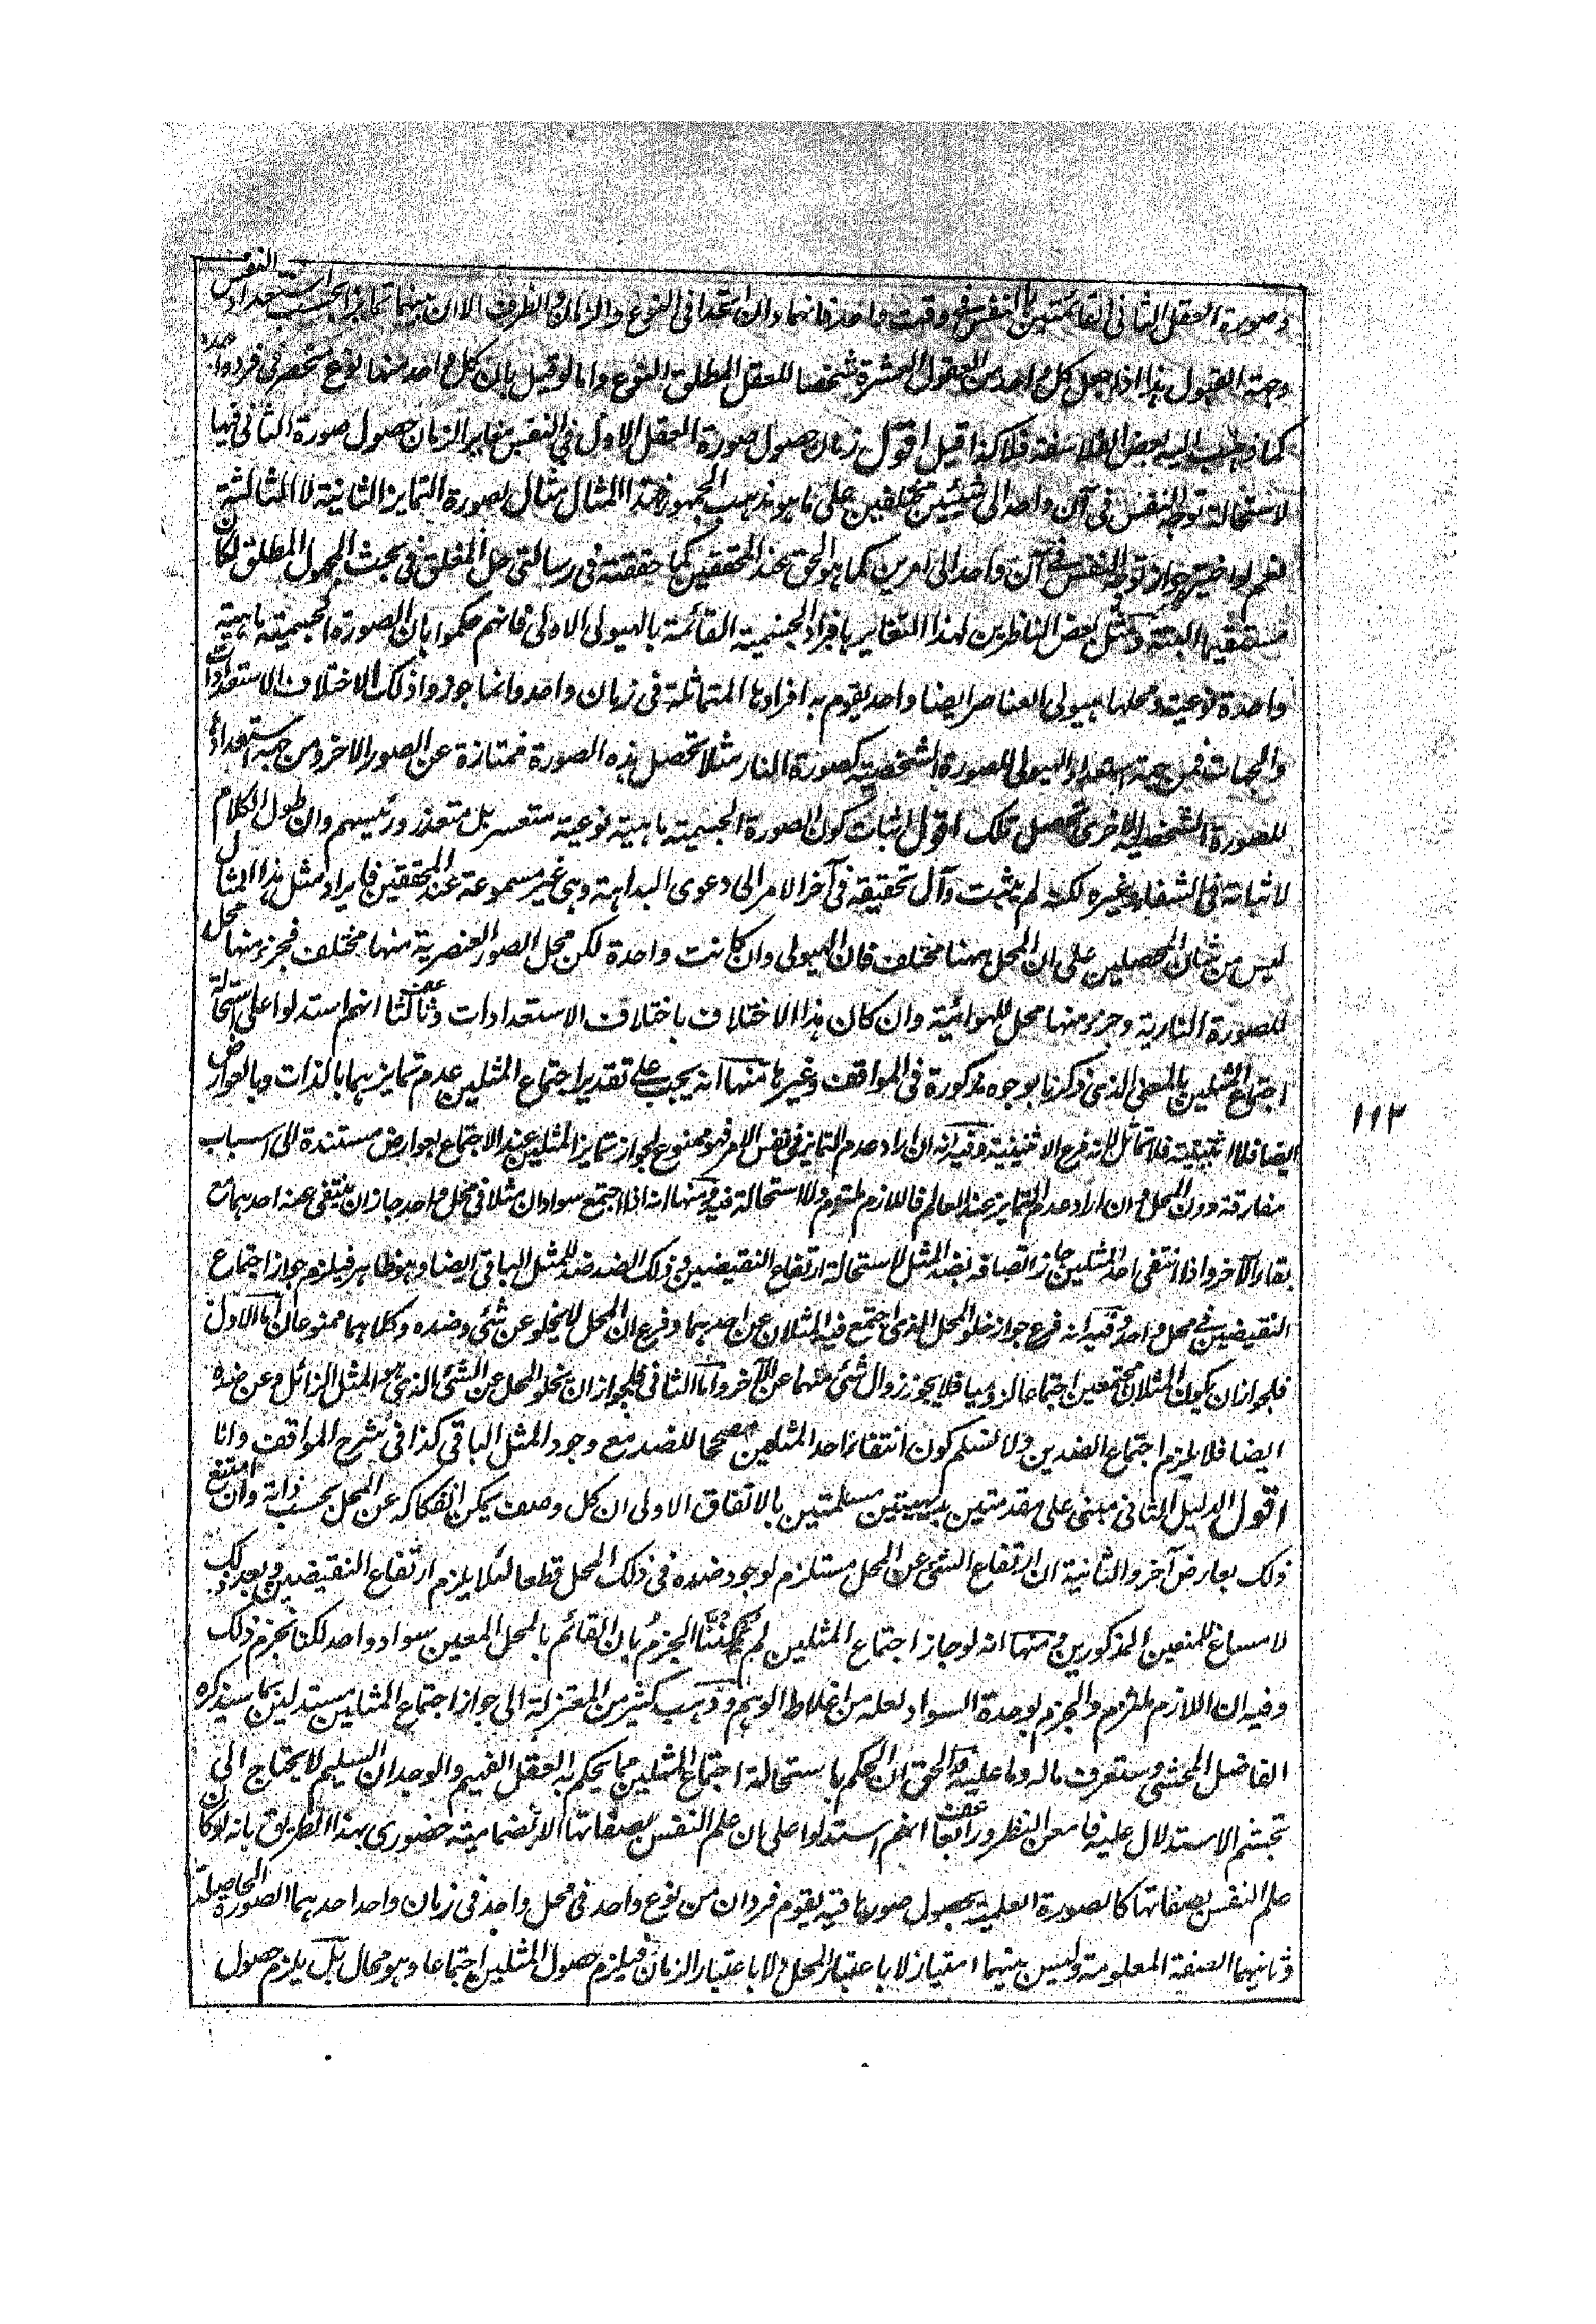 وصورة العقل الثانى القائمتين بالنفس فى وقت واحد فانهما وان اتحدا فى النوع والزمان والظرف الا ان بينهما تمايزا بحسب استعداد النفس
وجهة القبول هذا اذا جعل كل واحد من العقول العشرة شخصا للعقل المطلق النوع واما لو قيل بان كل واحد منها نوع منحصر فى فرد واحد
كما ذهب اليه بعض الفلاسفة فلا كذا قيل اقول زمان حصول صورة العقل الاول فى النفس مغاير لزمان حصول صورة الثانى فيها
لاستحالة توجه النفس فى آن واحد الى شيئين مختلفين على ما هو مذهب الجمهور فهذا المثال مثال لصورة التمايز الثانية لا الثالثة
نعم لو اختير جواز توجه النفس فى آن واحد الى امرين كما هو الحق عند المحققين كما حققته فى رسالتى حل المغلق فى بحث المجهول المطلق لكان
مستقيما البتة ومثل بعض الناظرين لهذا التغاير بافراد الجسمية القائمة بالهيولى الاولى فانهم حكموا بان الصورة الجسمية ماهية
واحدة نوعية ومحلها هيولى العناصر ايضا واحد يقوم به افرادها المتماثلة فى زمان واحد وانما جوزوا ذلك لاختلاف الاستعدادات
والجهات فمن جهة استعداد الهيولى للصورة الشخصية كصورة النار مثلا تحصل هذه الصورة ممتازة عن الصور الاخر ومن جهة استعداد
للصورة الشخصية الاخرى تحصل تلك اقول اثبات كون الصورة الجسمية ماهية نوعية متعسر بل متعذر ورئيسهم وان طول الكلام
لاثباته فى الشفاء وغيره لكنه لم يثبت وآل تحقيقه فى آخر الامر الى دعوى البداهة وهى غير مسموعة عند المحققين فايراد مثل هذا المثال
ليس من شان المحصلين على ان المحل ههنا مختلف فان الهيولى وان كانت واحدة لكن محل الصور العنصرية منها مختلف فجزء منها محل
للصورة النارية وجزء منها محل للهوائية وان كان هذا الاختلاف باختلاف الاستعدادات وثالثا انهم استدلوا على استحالة
اجتماع المثلين بالمعنى الذى ذكرنا بوجوه مذكورة فى المواقف وغيرها منها انه يجب على تقدير اجتماع المثلين عدم تمايزهما بالذات وبالعوارض
ايضا فلا اثنينية فلا تماثل لانه فرع الاثنينية وفيه انه ان اراد عدم التمايز فى نفس الامر فهو ممنوع لجواز تمايز المثلين عند الاجتماع بعوارض مستندة الى اسباب
مفارقة دون المحل وان اراد عدم التمايز عند العالم فاللازم ملتزم ولا استحالة فيه ومنها انه اذا اجتمع سوادان مثلا فى محل واحد جاز ان ينتفى عنه احدهما مع
بقاء الآخر واذا انتفى احد المثلين جاز اتصافه بضد المثل لاستحالة ارتفاع النقيضين وذلك الضد ضد للمثل الباقى ايضا وهو ظاهر فيلزم جواز اجتماع
النقيضين فى محل واحد وفيه انه فرع جواز خلو المحل الذى اجتمع فيه المثلان عن احدهما وفرع ان المحل لا يخلو عن شئ وضده وكلاهما ممنوعان اما الاول
فلجواز ان يكون المثلان مجتمعين اجتماعا لزوميا فلا يجوز زوال شئ منهما عن الآخر واما الثانى فلجواز ان يخلو المحل عن الشئ الذى هو المثل الزائل وعن ضده
ايضا فلا يلزم اجتماع الضدين ولا نسلم كون انتفاء احد المثلين مصححا للضد مع وجود المثل الباقى كذا فى شرح المواقف وانا
اقول الدليل الثانى مبنى على مقدمتين بديهيتين مسلمتين بالاتفاق الاولى ان كل وصف يمكن انفكاكه عن المحل بحسب ذاته وان امتنع
ذلك بعارض آخر والثانية ان ارتفاع الشئ عن المحل مستلزم لوجود ضده فى ذلك المحل قطعا لئلا يلزم ارتفاع النقيضين وبعد ذلك
لا مساغ للمنعين المذكورين ومنها انه لو جاز اجتماع المثلين لم يمكننا الجزم بان القائم بالمحل المعين سواد واحد لكنا نجزم ذلك
وفيه ان اللازم ملتزم والجزم بوحدة السواد لعله من اغلاط الوهم وذهب كثير من المعتزلة الى جواز اجتماع المثلين مستدلين بما سيذكره
الفاضل المحشى وستعرف ماله وما عليه والحق ان الحكم باستحالة اجتماع المثلين مما يحكم به العقل الفهيم والوجدان السليم لا يحتاج الى
تجشم الاستدلال عليه فامعن النظر ورابعا انهم استدلوا على ان علم النفس بصفاتها الانضمامية حضورى بهذا الطريق بانه لو كان
علم النفس بصفاتها كالصورة العلمية بحصول صورها فيه يقوم فردان من نوع واحد فى محل واحد فى زمان واحد احدهما الصورة الحاصلة
وثانيهما الصفة المعلومة وليس بينهما امتياز لا باعتبار المحل ولا باعتبار الزمان فيلزم حصول المثلين اجتماعا وهو محال بل يلزم حصول
١١٢